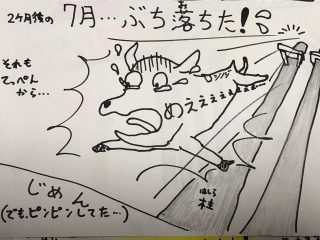 2ヶ月後の 7月…ぶち落ちた!
それも
てっぺん
から…
めえぇぇぇぇぇ…
じめん
(でも、ピンピンしてた…)
はしら
柱